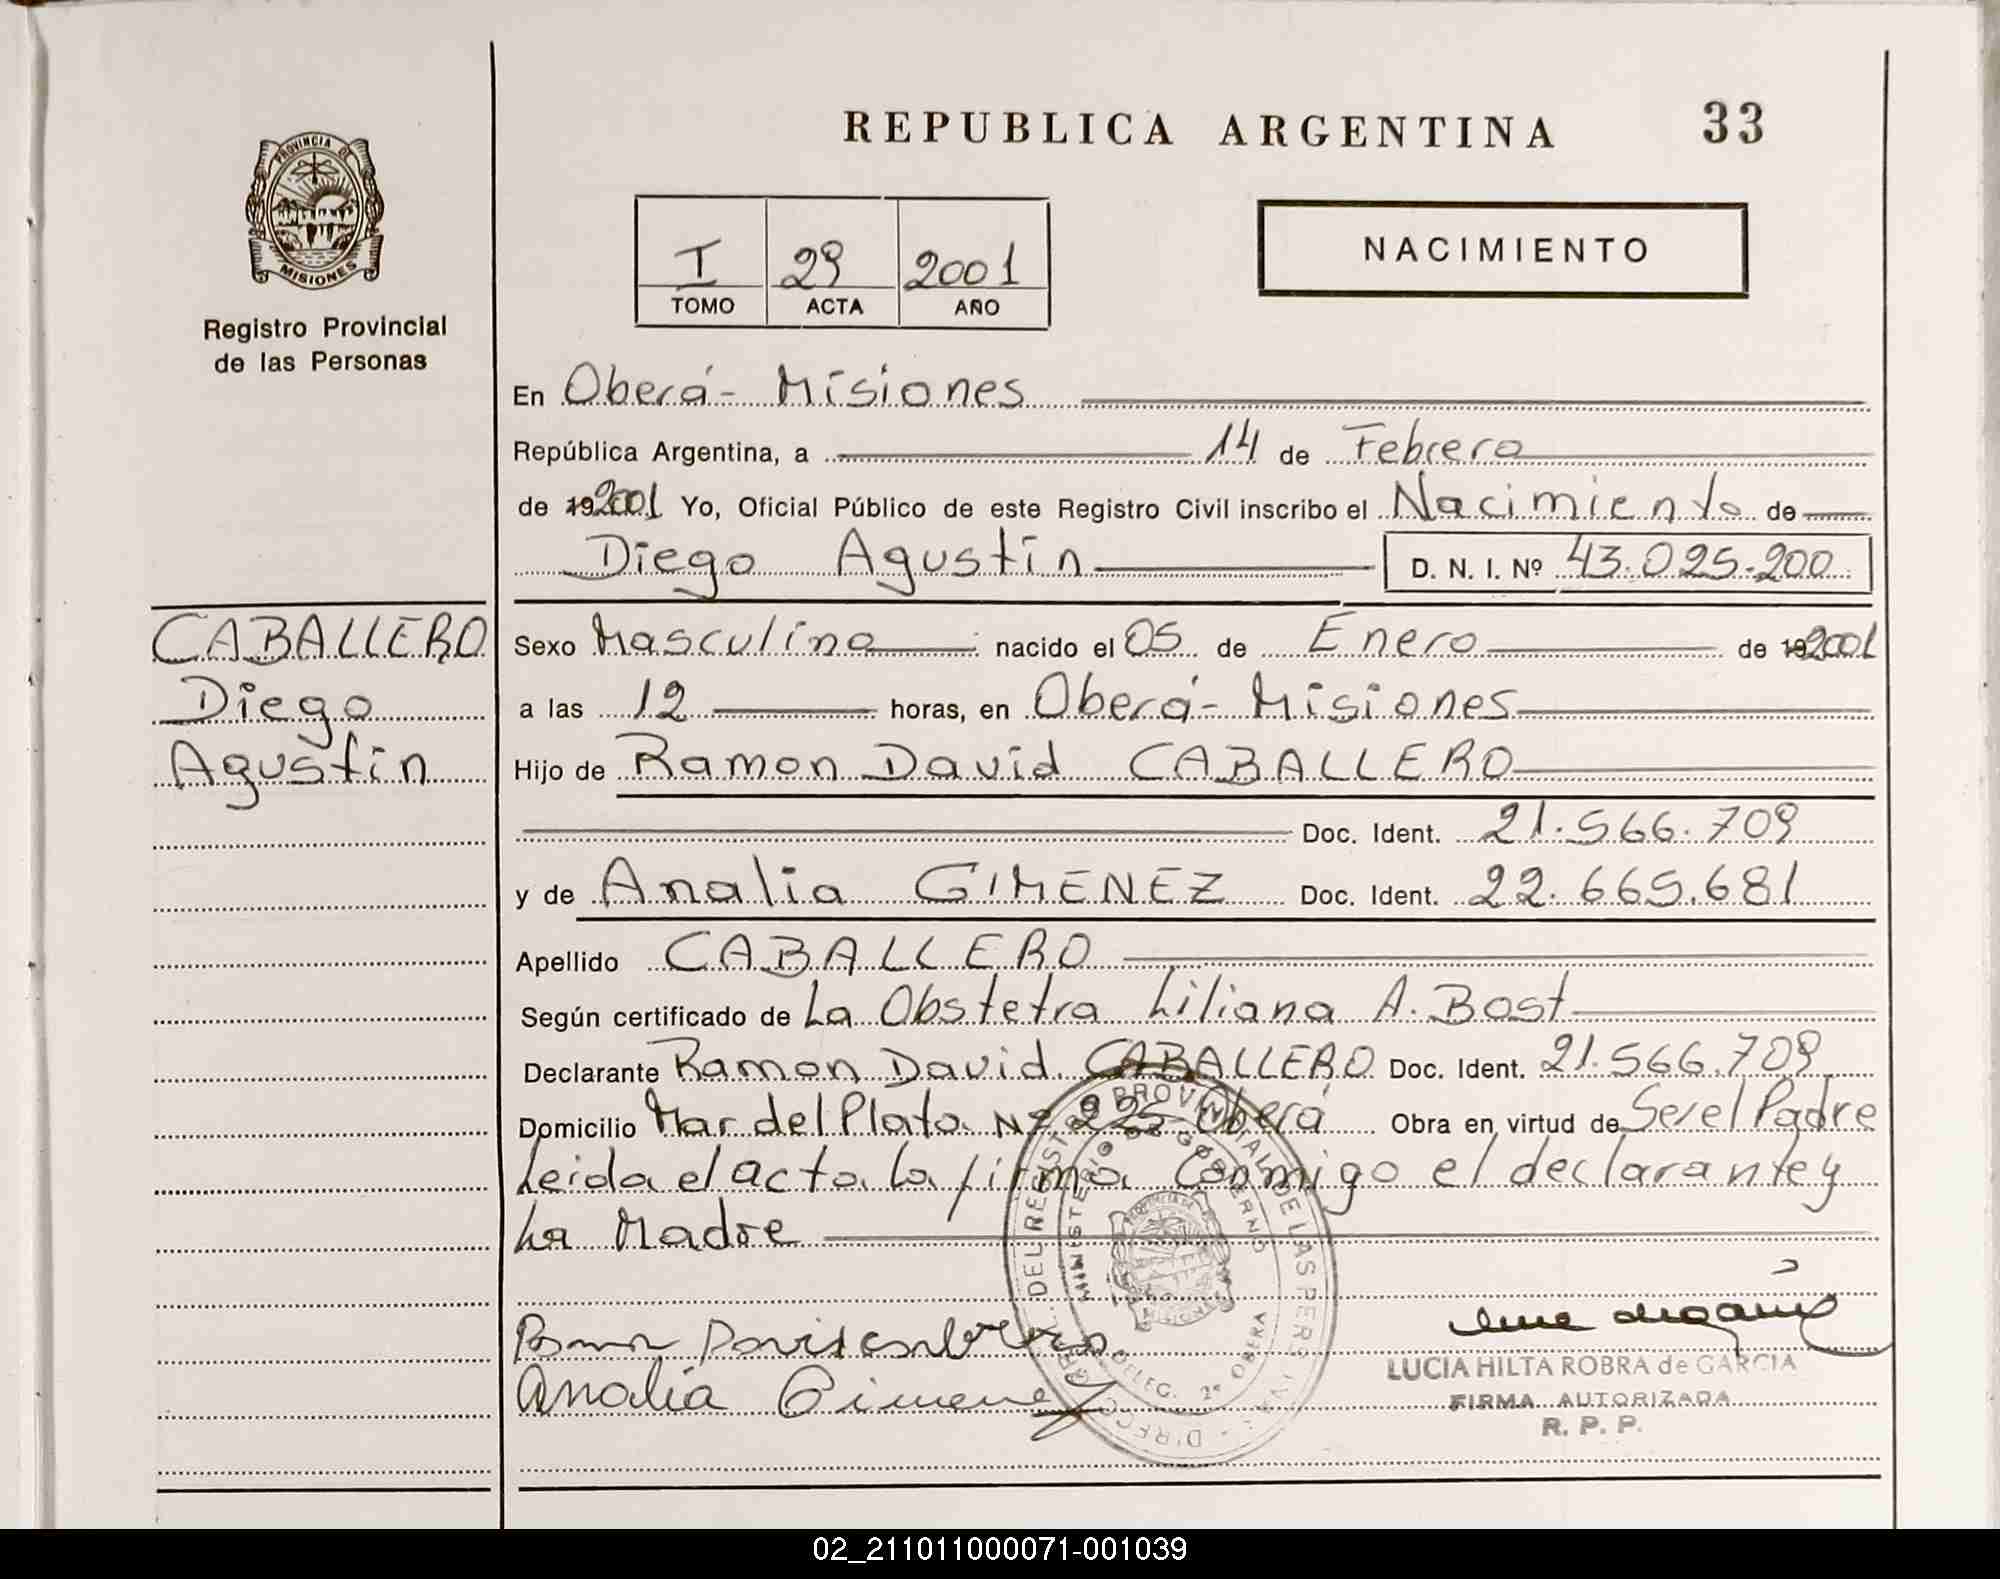 REPUBLICA ARGENTINA 33
PROVINCIA DE
MISIONES
Registro Provincial
de las Personas
I 29 2001
TOMO ACTA AÑO
NACIMIENTO
En Oberá - Misiones
República Argentina, a 14 de Febrero
de 192001 Yo, Oficial Público de este Registro Civil inscribo el Nacimiento de
Diego Agustín D. N. I. Nº 43.025.200
CABALLERO
Diego
Agustín
Sexo Masculino nacido el 05 de Enero de 192001
a las 12 horas, en Oberá - Misiones
Hijo de Ramon David CABALLERO
Doc. Ident. 21.566.709
y de Analia GIMENEZ Doc. Ident. 22.665.681
Apellido CABALLERO
Según certificado de La Obstetra Liliana A. Bost
Declarante Ramon David CABALLERO Doc. Ident. 21.566.709
Domicilio Mar del Plata Nº 225 Oberá Obra en virtud de Ser el Padre
Leida el acta la firma conmigo el declarante y
La Madre
DIRECC. GRAL. DEL REGISTRO PROVINCIAL DE LAS PERSONAS
MINISTERIO DE GOBIERNO
DELEG. 2ª OBERA
Analia Gimenez
LUCIA HILTA ROBRA de GARCIA
FIRMA AUTORIZADA
R. P. P.
02_211011000071-001039